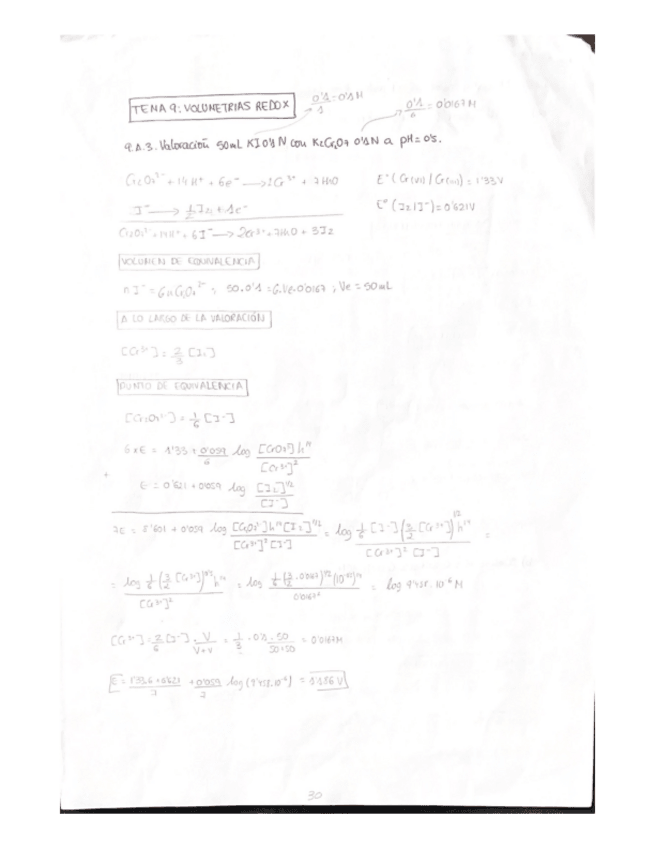 TEMA 9: VOLUMETRIAS REDOX
0'1/1 = 0'1M
0'1/6 = 0'0167M
9.A.3. Valoración 50mL KI 0'1 N con K2Cr2O7 0'1N a pH= 0'5.
Cr2O7²⁻ + 14H⁺ + 6e⁻ → 2Cr³⁺ + 7H2O E°(Cr(VI)/Cr(III)) = 1'33V
I⁻ → 1/2 I2 + 1e⁻ E°(I2/I⁻) = 0'621V
Cr2O7²⁻ + 14H⁺ + 6I⁻ → 2Cr³⁺ + 7H2O + 3I2
VOLUMEN DE EQUIVALENCIA
nI⁻ = 6nCr2O7²⁻ ; 50·0'1 = 6·Ve·0'0167 ; Ve = 50mL
A LO LARGO DE LA VALORACIÓN
[Cr³⁺] = 2/3 [I2]
PUNTO DE EQUIVALENCIA
[Cr2O7²⁻] = 1/6 [I⁻]
6xE = 1'33 + 0'059/6 log [Cr2O7²⁻] h¹⁴/[Cr³⁺]²
E = 0'621 + 0'059 log [I2]^1/2/[I⁻]
7E = 8'601 + 0'059 log [Cr2O7²⁻] h¹⁴ [I2]^1/2/[Cr³⁺]² [I⁻] = log 1/6 [I⁻] (3/2 [Cr³⁺])^1/2 h¹⁴/[Cr³⁺]² [I⁻] =
= log 1/6 (3/2 [Cr³⁺])^1/2 h¹⁴/[Cr³⁺]² = log 1/6 (3/2 · 0'0167)^1/2 (10^-0'5)¹⁴/0'0167² = log 9'458·10⁻⁶ M
[Cr³⁺] = 2/6 [I⁻] · V/V+v = 1/3 · 0'1 · 50/50+50 = 0'0167M
E = 1'33·6 + 0'621/7 + 0'059/7 log (9'458·10⁻⁶) = 1'186 V
30